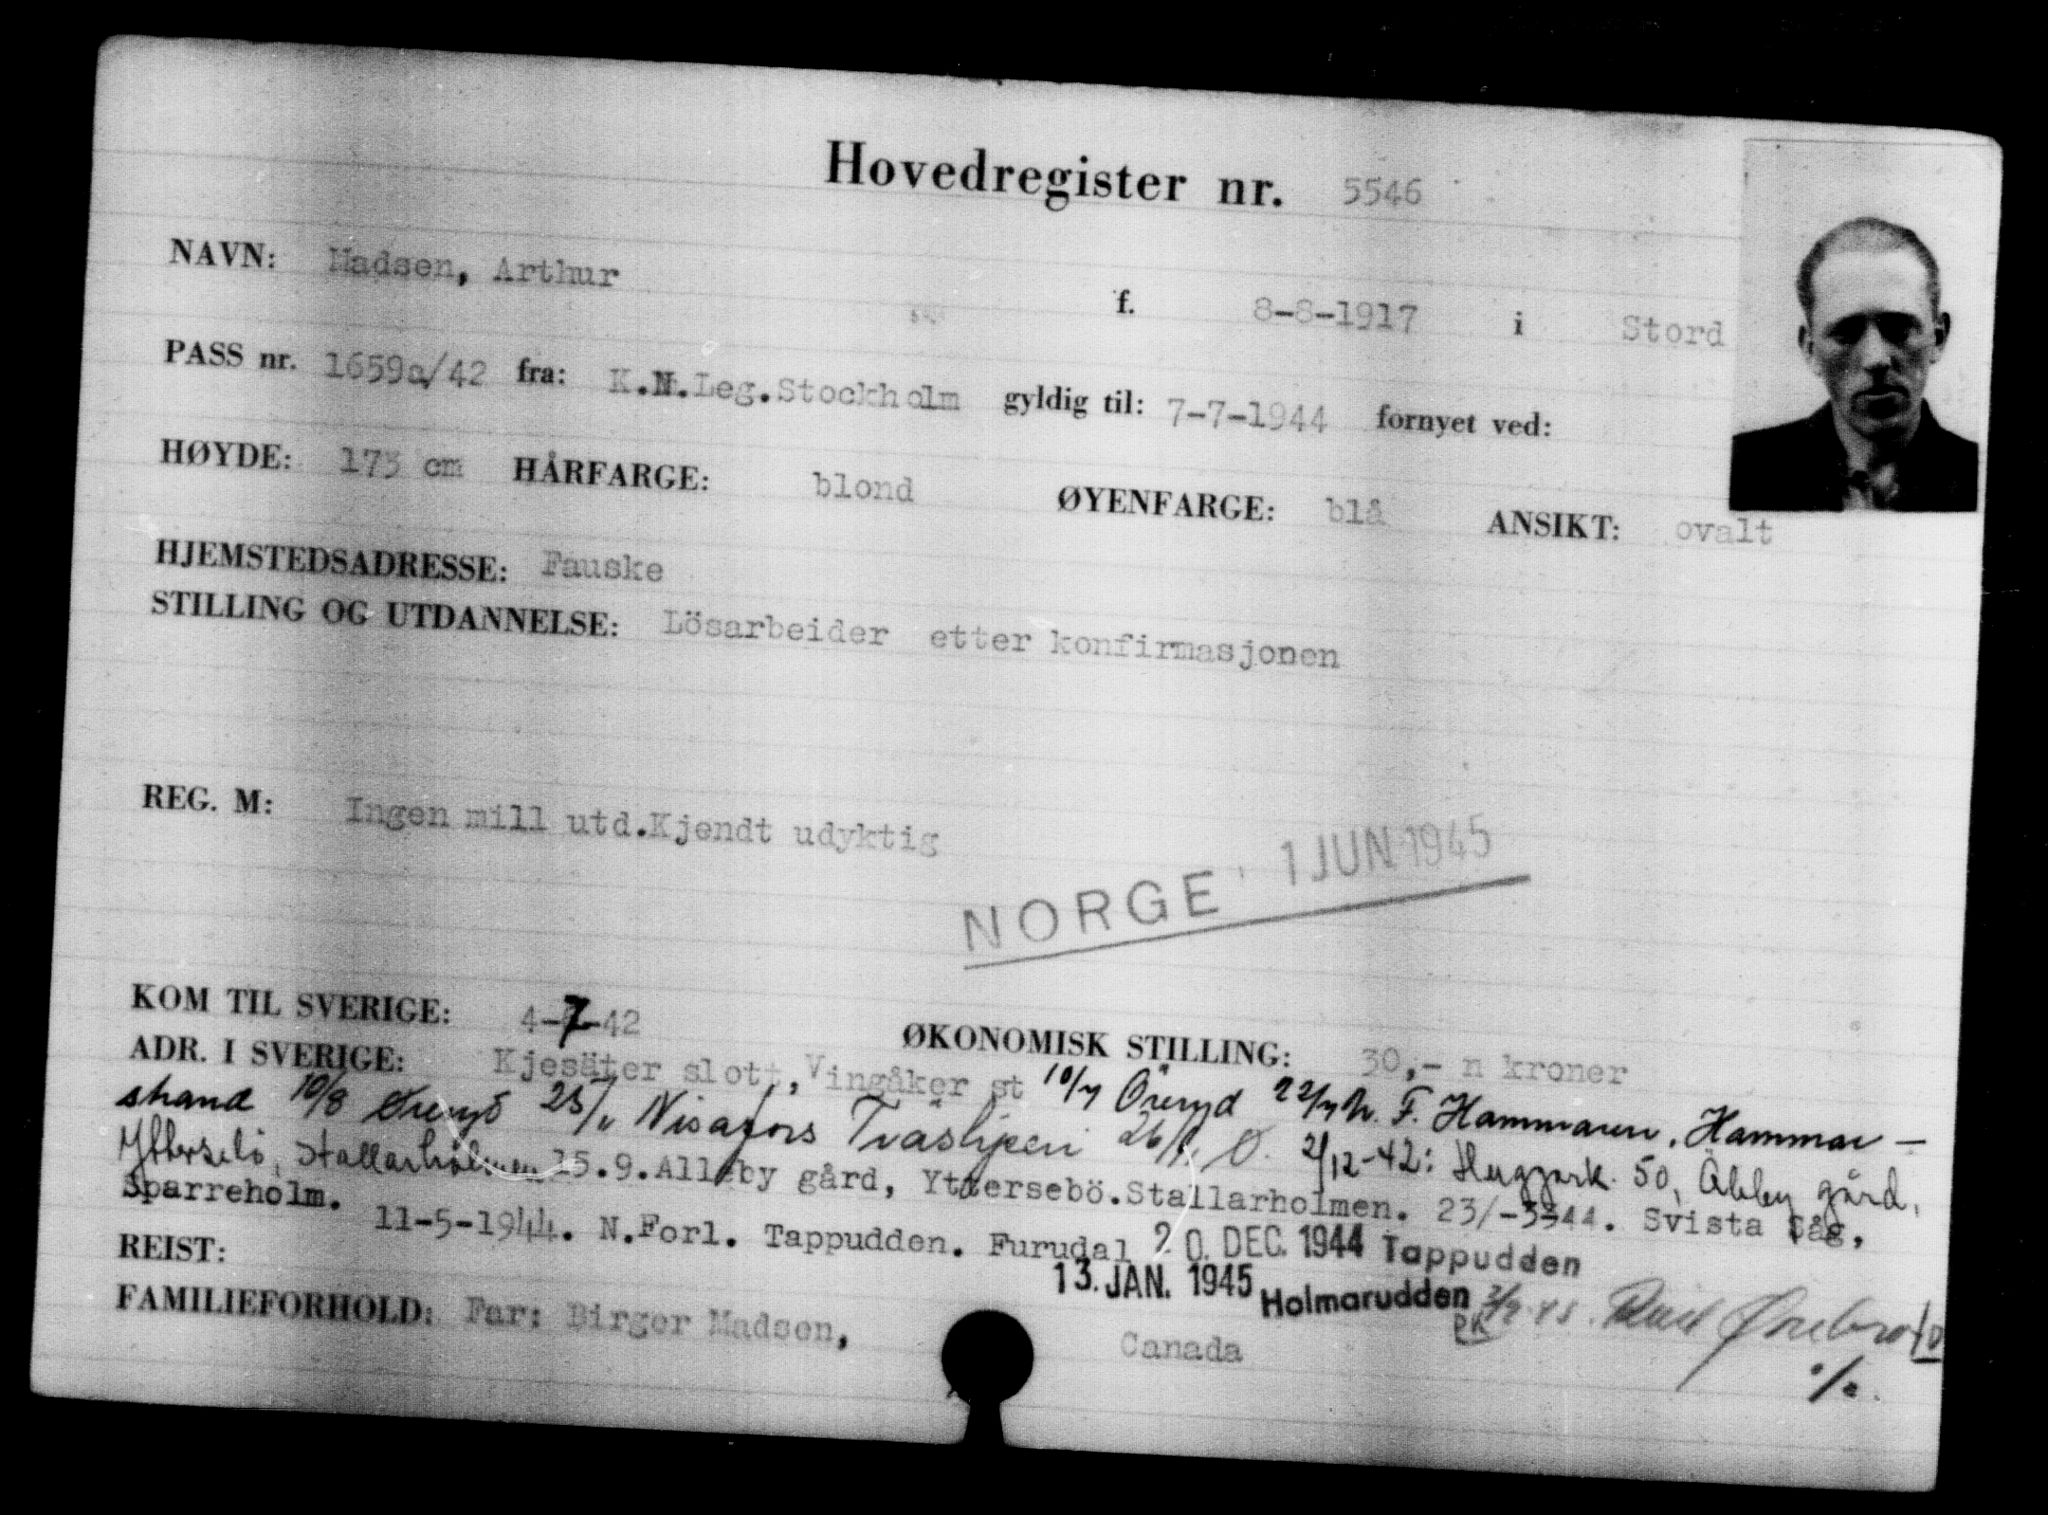 Hovedregister nr. 5546
NAVN: Madsen, Arthur f. 8-8-1917 i Stord
PASS nr. 1659a/42 fra: K.N.Leg.Stockholm gyldig til: 7-7-1944 fornyet ved:
HØYDE: 173 cm HÅRFARGE: blond ØYENFARGE: blå ANSIKT: ovalt
HJEMSTEDSADRESSE: Fauske
STILLING OG UTDANNELSE: Lösarbeider etter konfirmasjonen
REG. M: Ingen mill utd.Kjendt udyktig
NORGE 1 JUN 1945
KOM TIL SVERIGE: 4-7-42 ØKONOMISK STILLING: 30,- n kroner
ADR. I SVERIGE: Kjesäter slott, Vingåker st 10/7 Öreryd 22/7 F. Hammaren, Hammar-
strand 10/8 25/ Nissafors Träsliperi 26/ 2/12-42: Huggark. 50, Äleby gård,
Ytterselö, Stallarholmen 15.9.Alleby gård, Yttersebö.Stallarholmen. 23/-3-44. Svista Såg,
Sparreholm. 11-5-1944. N.Forl. Tappudden. Furudal 20. DEC. 1944 Tappudden
REIST: 13. JAN. 1945 Holmarudden
FAMILIEFORHOLD: Far: Birger Madsen, Canada